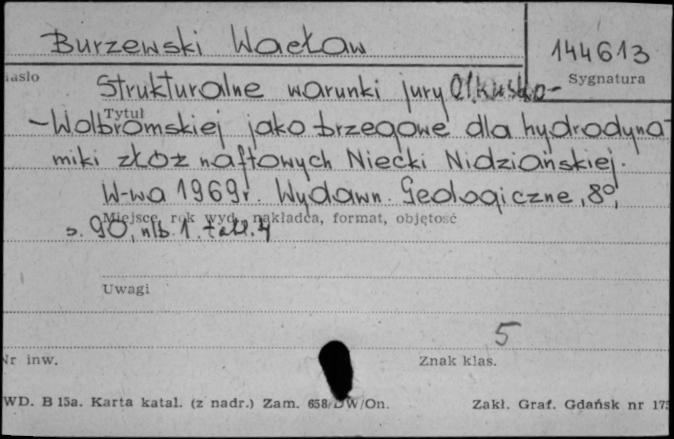 Burzewski Wacław
144613
Sygnatura
asło
Strukturalne warunki jury Olkusko-
Tytuł
-Wolbromskiej jako brzegowe dla hydrodyna-
miki złóż naftowych Niecki Nidziańskiej.
W-wa 1969r. Wydawn. Geologiczne, 8°,
Miejsce, rok wyd., nakładca, format, objętość
s. 90, nlb. 1. tabl. 4
Uwagi
5
Nr inw.
Znak klas.
WD. B 15a. Karta katal. (z nadr.) Zam. 658/DW/On.
Zakł. Graf. Gdańsk nr 175